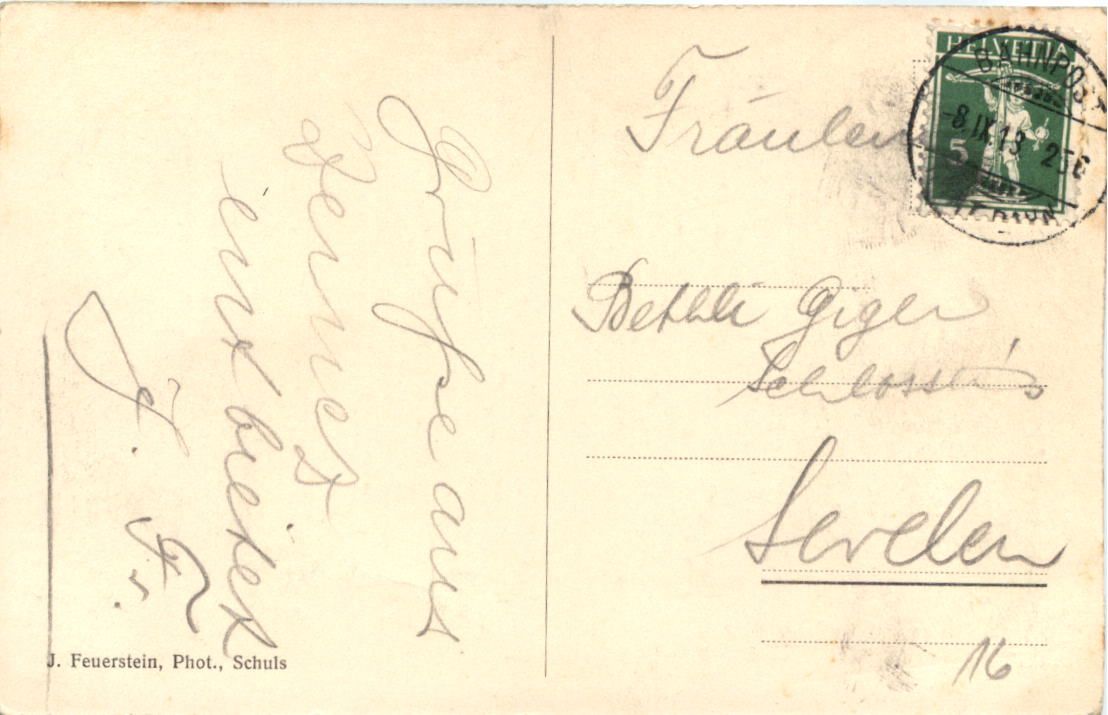 Grüsse aus
Zernez
entbietet
J. F.
J. Feuerstein, Phot., Schuls
HELVETIA
5
BAHNPOST
-8.IX.13
Fräulein
Bethli Giger
Sevelen
16